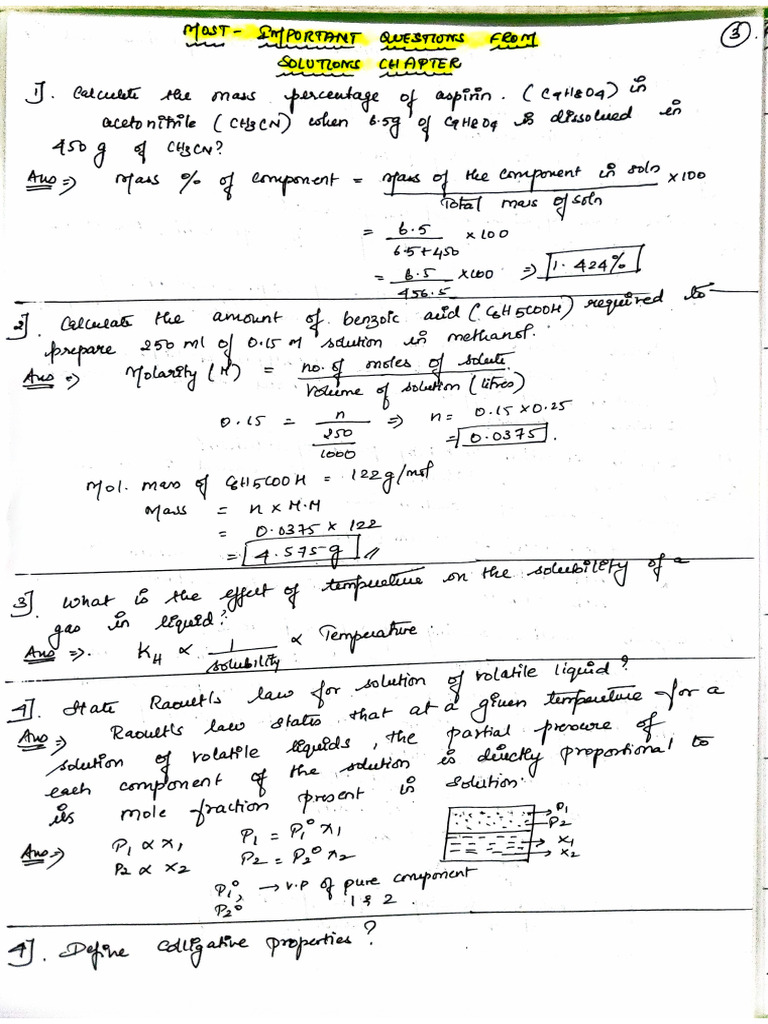 MOST - IMPORTANT QUESTIONS FROM
3
SOLUTIONS CHAPTER
1]. Calculate the mass percentage of aspirin. (C9H8O4) in
acetonitrile (CH3CN) when 6.5g of C9H8O4 is dissolved in
450 g of CH3CN?
Ans => Mass % of component = Mass of the component in soln / Total mass of soln × 100
= 6.5 / 6.5+450 × 100
= 6.5 / 456.5 × 100 => 1.424%
2]. Calculate the amount of benzoic acid (C6H5COOH) required to
prepare 250 ml of 0.15 M solution in methanol.
Ans => Molarity (M) = no. of moles of solute / Volume of solution (litres)
0.15 = n / 250/1000 => n = 0.15 × 0.25
= 0.0375.
Mol. mass of C6H5COOH = 122 g/mol
Mass = n × M.M
= 0.0375 × 122
= 4.575 g //
3]. What is the effect of temperature on the solubility of a
gas in liquid?
Ans =>. KH ∝ 1 / solubility ∝ Temperature.
4]. State Raoult's law for solution of volatile liquid?
Ans => Raoult's law states that at a given temperature for a
solution of volatile liquids, the partial pressure of
each component of the solution is directly proportional to
its mole fraction present in solution.
Ans => P1 ∝ x1 P1 = P1° x1
P2 ∝ x2 P2 = P2° x2
P1
P2
x1
x2
P1°, P2° → v.p of pure component
1 & 2.
4]. Define colligative properties?